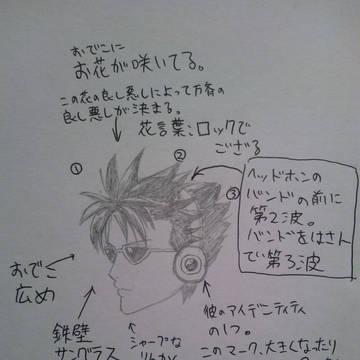 おでこに
お花が咲いてる。
この花の良し悪しによって万斉の
良し悪しが決まる。
花言葉:ロックで
ござる
①
②
③
ヘッドホンの
バンドの前に
第2波。
バンドをはさん
で第3波
おでこ
広め
鉄壁
サングラス
シャープな
りんかく
彼のアイデンティティ
の1つ。
このマーク、大きくなったり